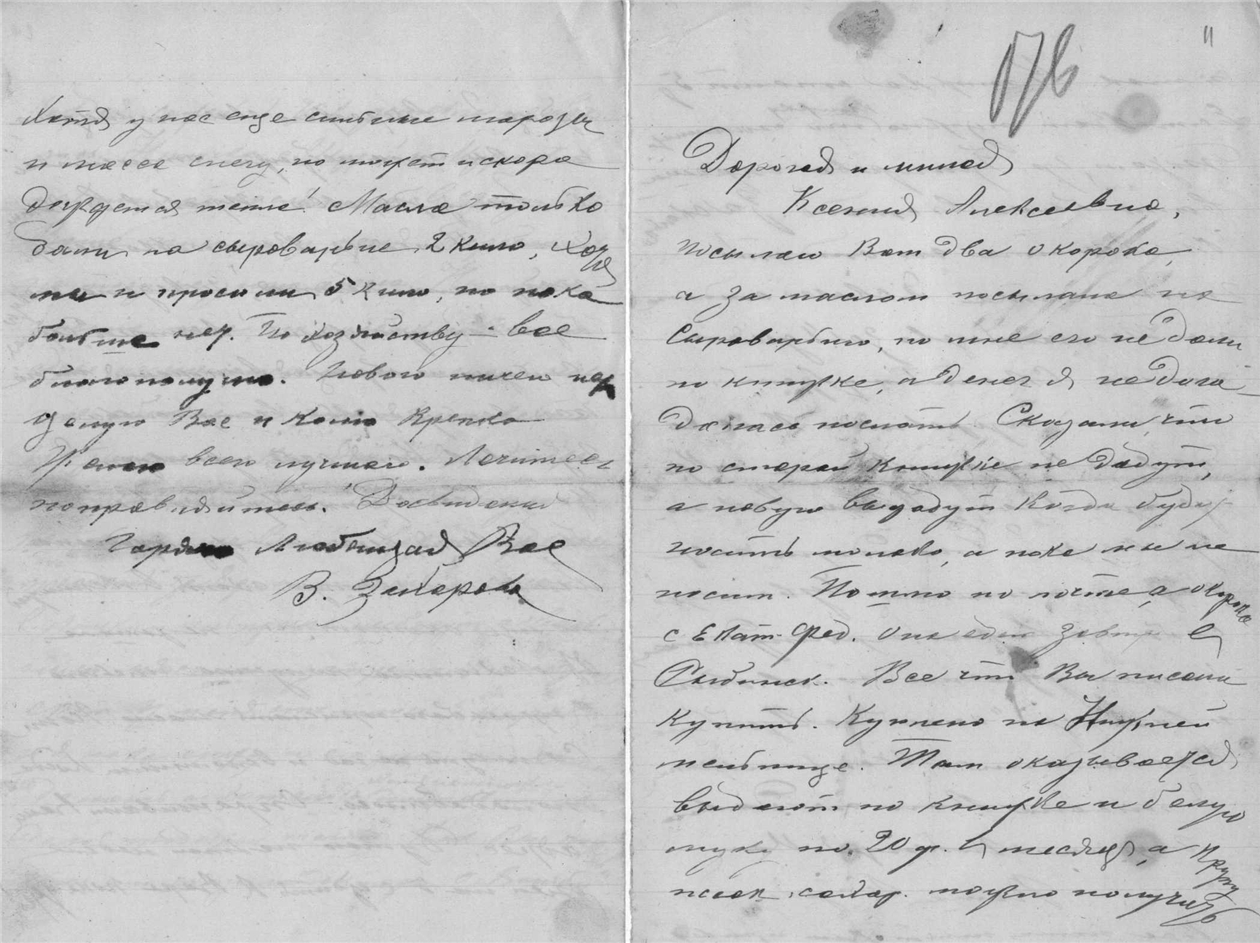 11
Дорогая и милая
Ксения Алексеевна,
посылаю Вам два окорока,
а за маслом посылала на
сыроварню, но мне его не дали
по книжке, а денег я не дога
далась послать. Сказали, что
по старой книжке не дадут,
а новую выдадут когда будут
носить молоко, а пока мы не
носим. Письмо по почте, а окорока
с Екат. Фед. Она едет завтра в
Рыбинск. Все что Вы писали
купить. Куплено на Нижней
мельнице. Там оказывается
выдают по книжке и белую
муку по 20 ф. в месяц, а крупу
сахар можно получить
Хотя у нас еще сильные морозы
и масса снегу, но может и скоро
дождемся тепла! Масла только
дали на сыроварне 2 кило, хотя
мы и просили 5 кило, но пока
больше нет. По хозяйству – все
благополучно. Нового ничего нет
Целую Вас и Колю крепко
Желаю всего лучшего. Лечитесь
поправляйтесь. Досвиданья
Горячо любящая Вас
В. Захарова